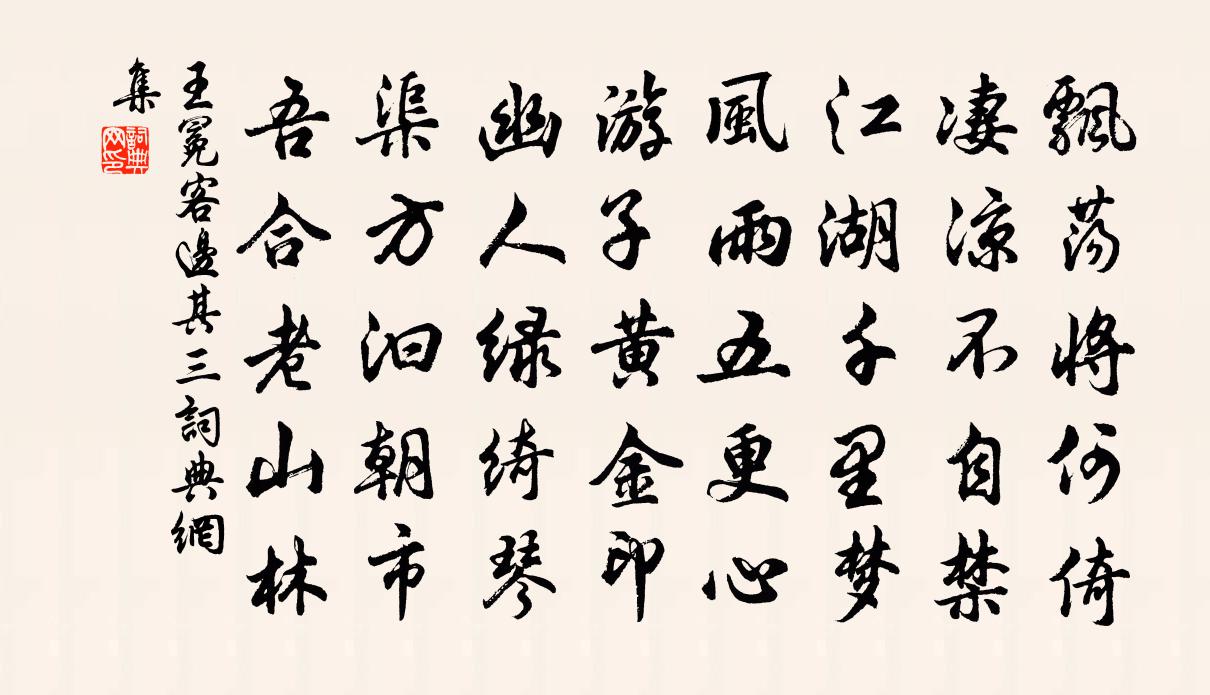 飄荡將何倚
凄凉不自禁
江湖千里梦
風雨五更心
游子黄金印
幽人緑綺琴
渠方汩朝市
吾合老山林
王冕客邊其三詞典網
集
詞典
网印